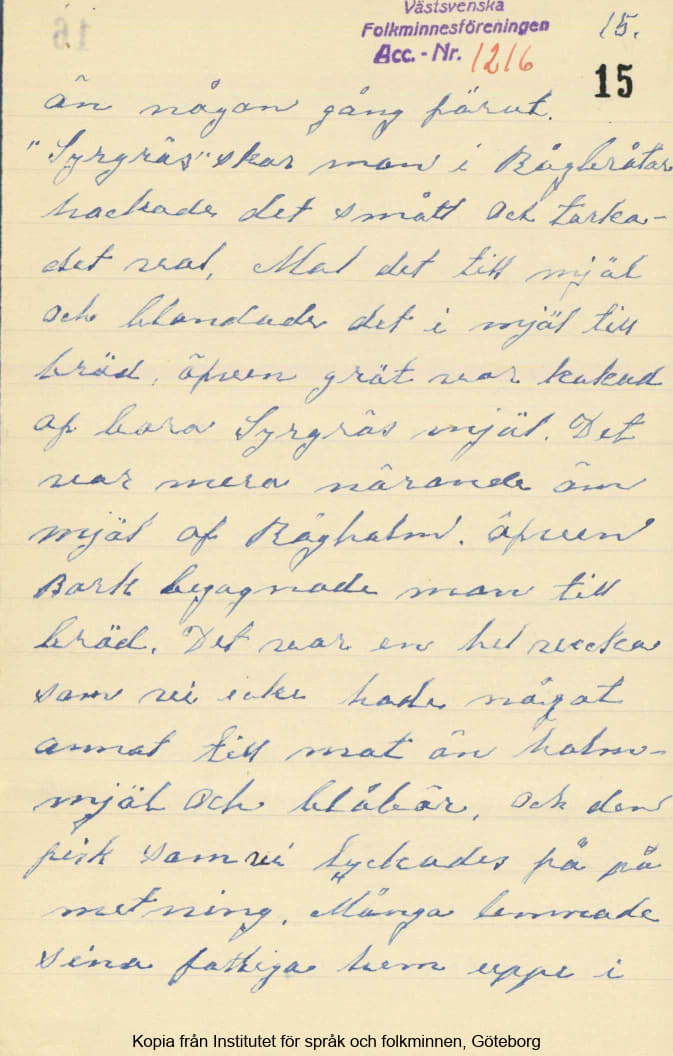 Västsvenska
Folkminnesföreningen
Acc. - Nr. 1216
15.
15
än någon gång förut.
"Syrgräs" skar man i Rågbråtar
hackade det smått och torka-
det val, Mal det till mjöl
och blandade det i mjöl till
bröd, äfven gröt var kokad
af bara Syrgräs mjöl. Det
var mera närande än
mjöl af Råghalm. äfven
Bark begagnade man till
bröd. Det var en hel vecka
som vi icke hade något
annat till mat än halm-
mjöl och blåbär, och den
fisk som vi lyckades få på
metning. Många lemnade
sina fattiga hem uppe i
Kopia från Institutet för språk och folkminnen, Göteborg